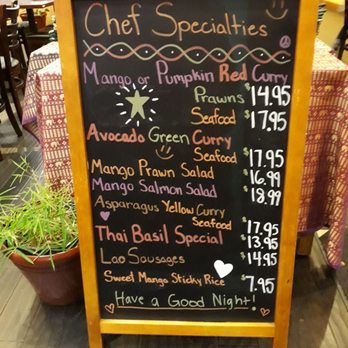 Chef Specialties
Mango or Pumpkin Red Curry
Prawns $14.95
Seafood $17.95
Avocado Green Curry
Seafood $17.95
Mango Prawn Salad $16.99
Mango Salmon Salad $18.99
Asparagus Yellow Curry
Seafood $17.95
Thai Basil Special $13.95
Lao Sausages $14.95
Sweet Mango Sticky Rice $7.95
Have a Good Night!